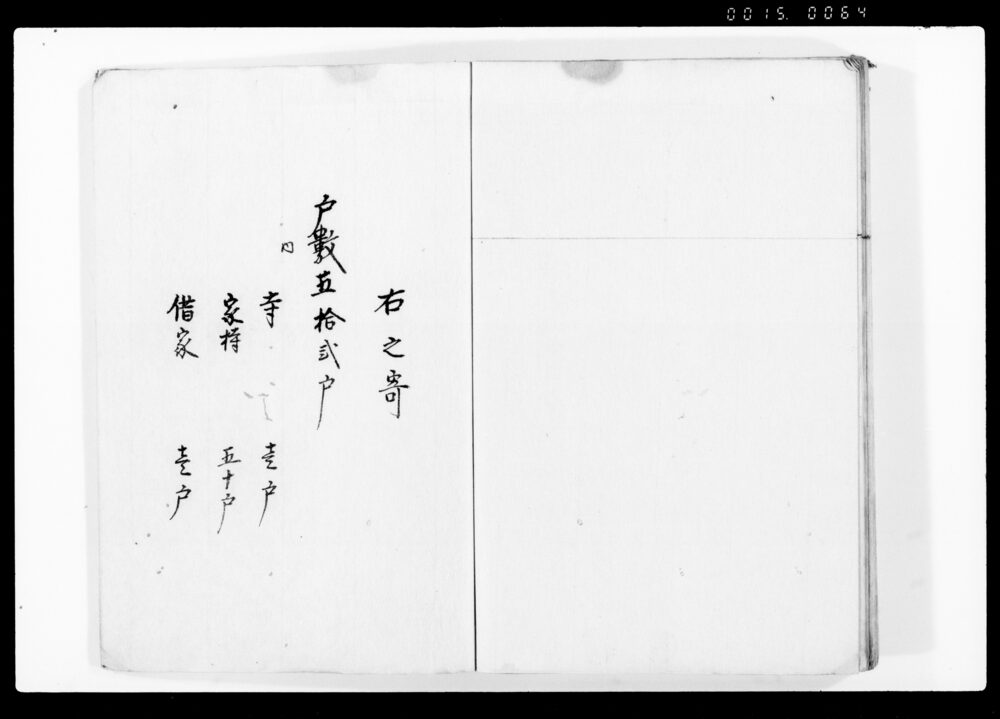 0015. 0064
右之寄
戸數五拾弐戸
内
寺 壱戸
家持 五十戸
借家 壱戸